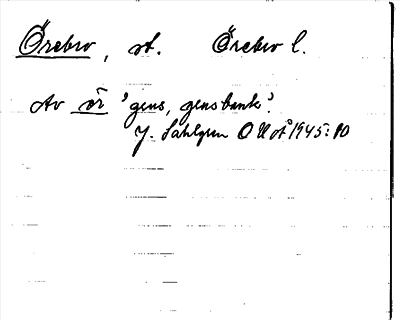 Örebro, st. Örebro l.
Av ör 'grus, grusbank'.
J. Sahlgren OUoÅ 1945:10